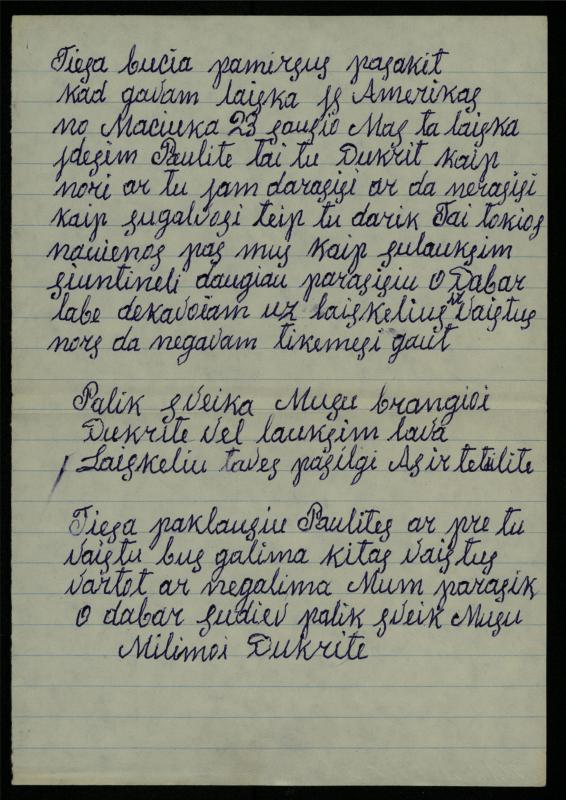 Tiesa bučia pamirsus pasakit
kad gavam laiska is Amerikas
no Maciuka 23 sausio Mas ta laiska
įdesim Paulite tai tu Dukrit kaip
nori ar tu jam darasisi ar da nerasisi
kaip sugalvosi teip tu darik Tai tokios
nauienos pas mus kaip sulauksim
siuntineli daugiau parasisiu O Dabar
labe dekavoiam uz laiskelius ir vaistus
nors da negavam tikemesi gaut
Palik sveika Musu brangioi
Dukrite vel lauksim tava
Laiskeliu taves pasilgi Asir tetulite
Tiesa paklausiu Paulites ar pre tu
vaistu bus galima kitas vaistus
vartot ar negalima Mum parasik
O dabar sudiev palik sveik Musu
Milimoi Dukrite